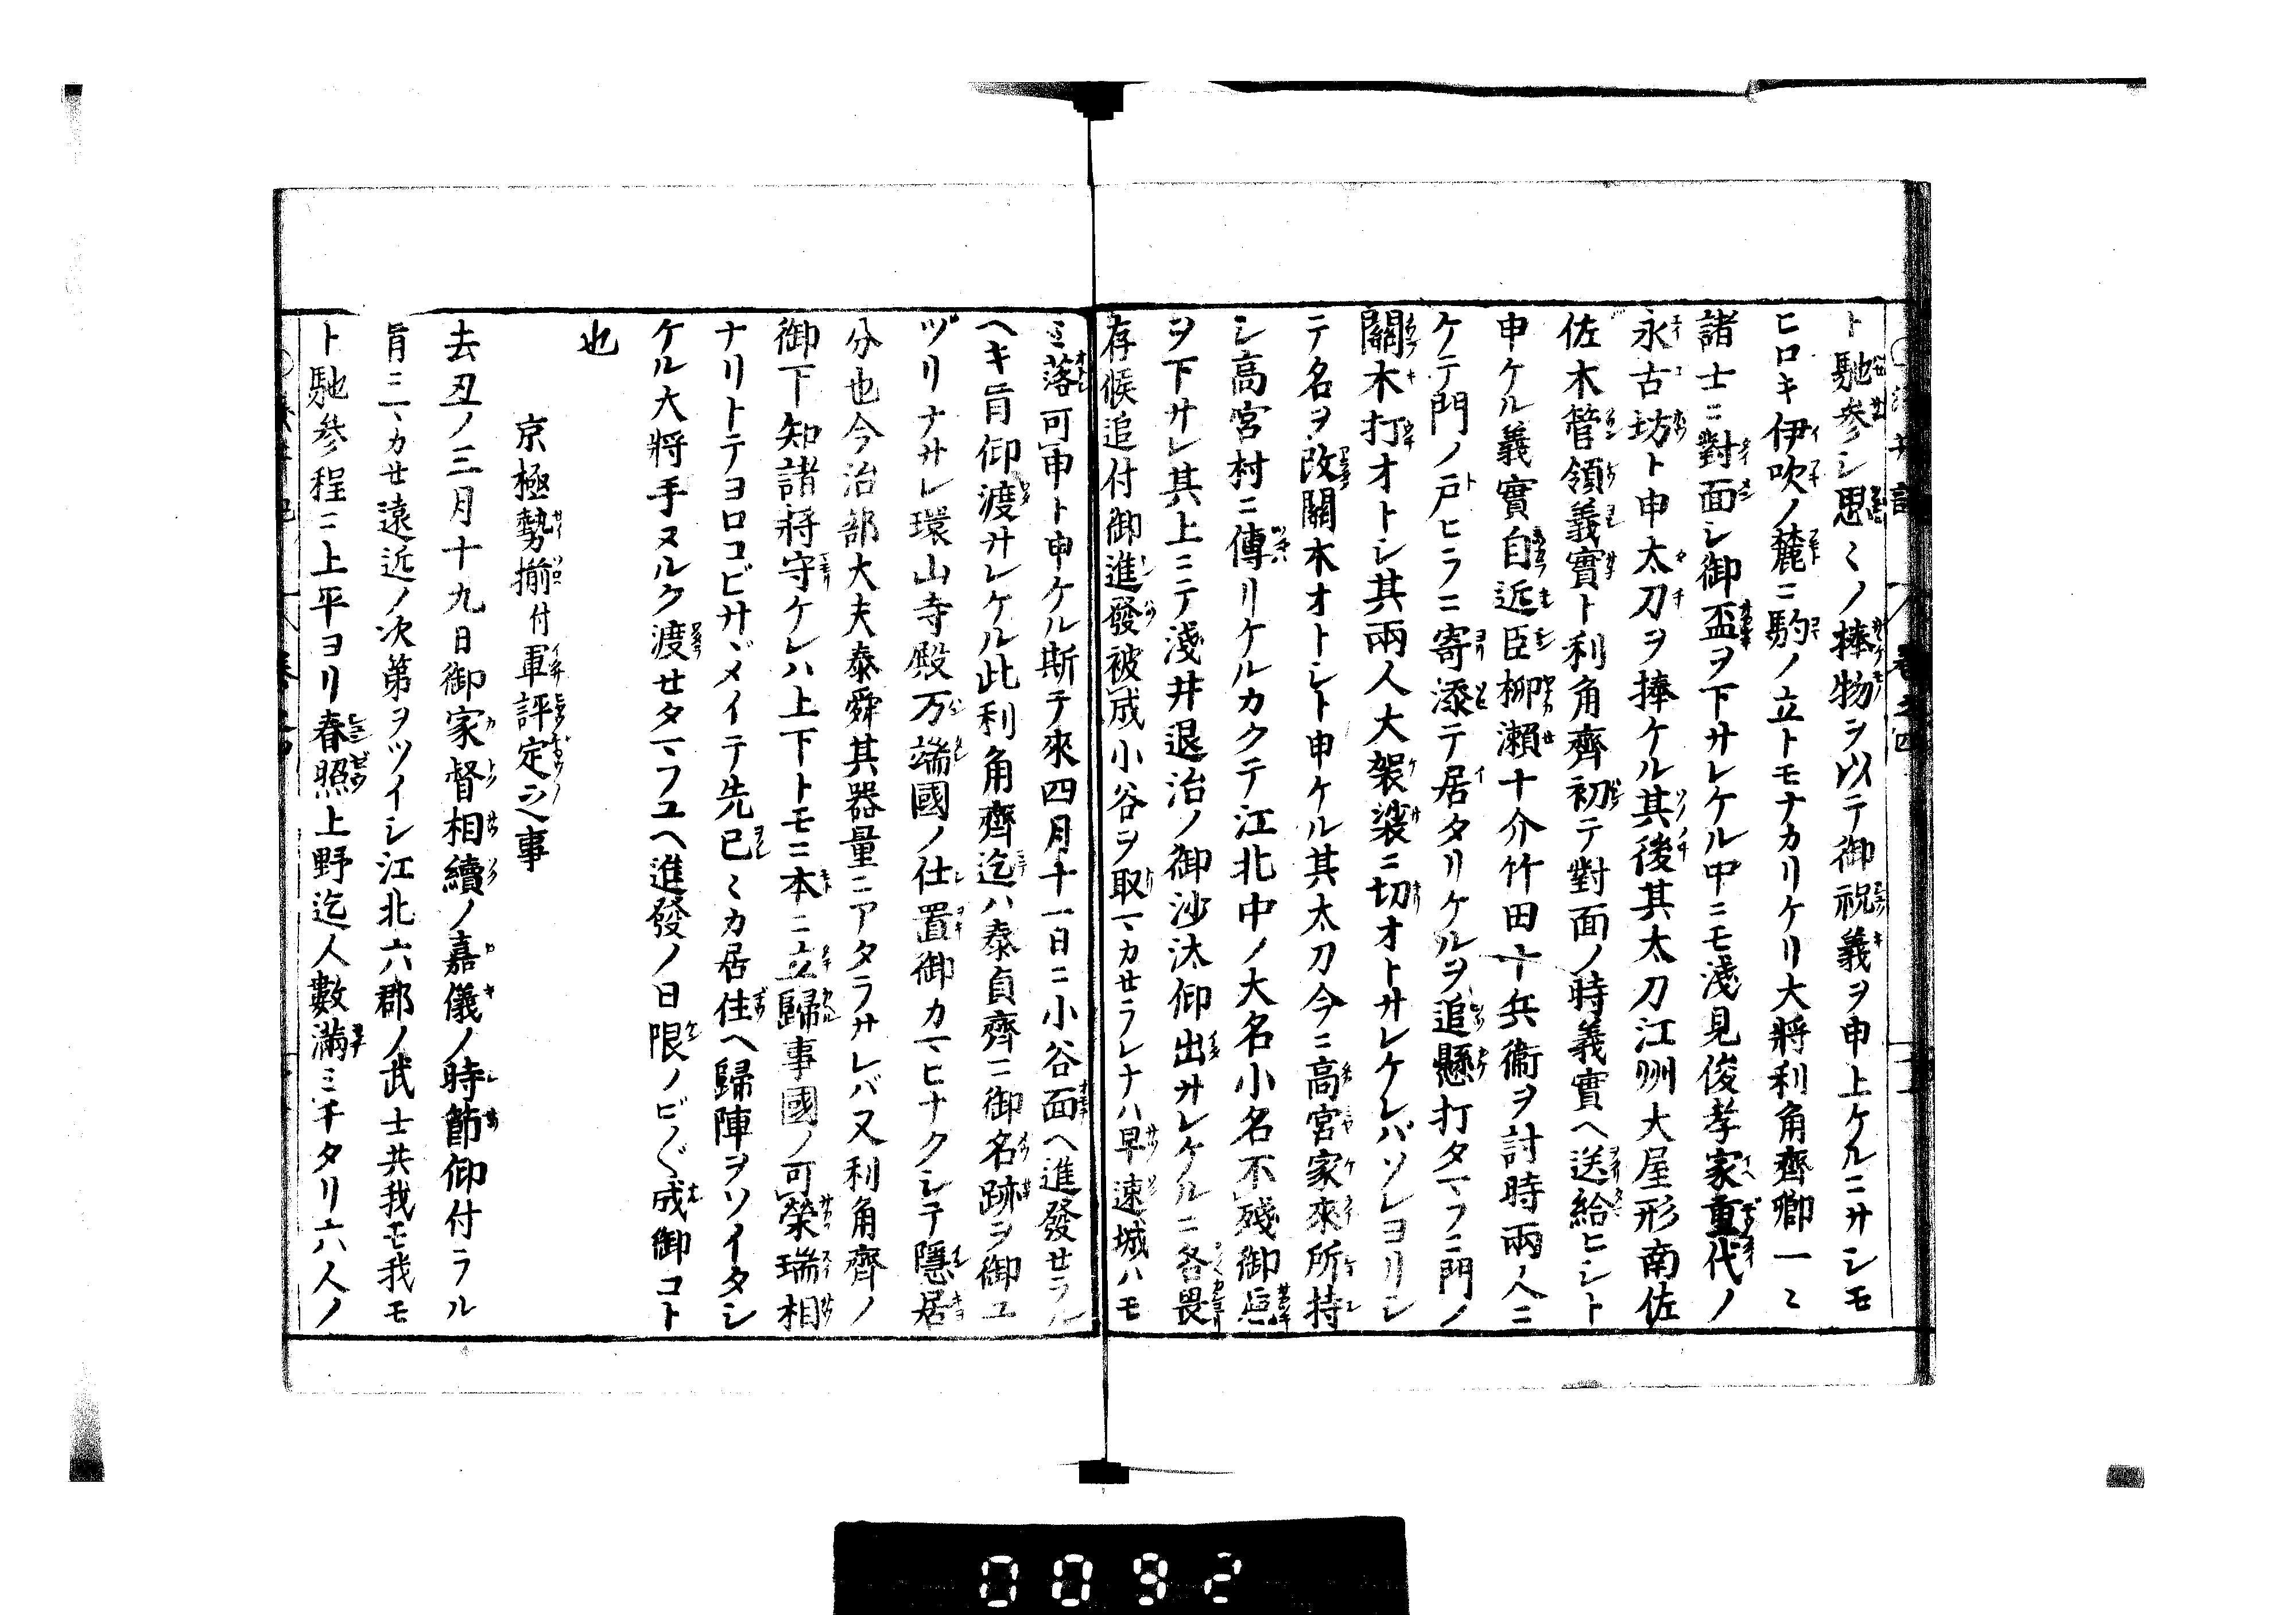 ト馳参シ思〻ノ捧物ヲ以テ御祝義ヲ申上ケルニサシモ
ヒロキ伊吹ノ麓ニ駒ノ立トモナカリケリ大將利角齊卿一〻
諸士ニ對面シ御盃ヲ下サレケル中ニモ淺見俊孝家重代ノ
永古坊ト申太刀ヲ捧ケル其後其太刀江州大屋形南佐
佐木管領義實ト利角齊初テ對面ノ時義實へ送給ヒシト
申ケル義實自近臣柳瀬十介竹田十兵衞ヲ討時兩人ニ
ケテ門ノ戸ヒラニ寄添テ居タリケルヲ追懸打タマフニ門ノ
關木打オトシ其兩人大袈裟ニ切オトサレケレバソレヨリシ
テ名ヲ改關木オトシト申ケル其太刀今ニ高宮家來所持
シ高宮村ニ傳リケルカクテ江北中ノ大名小名不殘御
ヲ下サレ其上ニテ淺井退治ノ御沙汰仰出サレケルニ各畏
存候追付御進發被成小谷ヲ取マカセラレナハ早速城ハモ
ミ落可申ト申ケル斯テ來四月十一日ニ小谷面へ進發セラル
ヘキ旨仰渡サレケル此利角齊迄ハ泰貞齊ニ御名跡ヲ御ユ
ヅリナサレ環山寺殿万端國ノ仕置御カマヒナクシテ隱居
分也今治部大夫泰舜其器量ニアタラサレバ又利角齊ノ
御下知諸將守ケレハ上下トモニ本ニ立歸事國ノ可榮瑞相
ナリトテヨロコビサヾメイテ先已〻カ居住へ歸陣ヲソイタシ
ケル大將手ヌルク渡セタマフユへ進發ノ日限ノビ〲成御コト
也
京極勢揃付軍評定之事
去丑ノ三月十九日御家督相續ノ嘉儀ノ時節仰付ラル
旨ニマカセ遠近ノ次第ヲツイシ江北六郡ノ武士共我モ我モ
ト馳參程ニ上平ヨリ春照上野迄人數滿ミチタリ六人ノ
0092